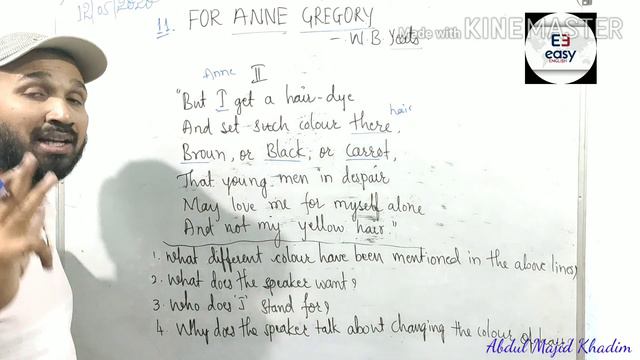 12/05/2020
11. FOR ANNE GREGORY
Made with KINEMASTER
- W B Yeats
EE
easy
ENGLISH
Anne II
"But I get a hair-dye
hair
And set such colour there,
Broun, or Black, or Carrot,
That young men in despair
May love me for myself alone
And not my yellow hair."
1. What different colour have been mentioned in the above lines?
2. What does the speaker want?
3. Who does 'I' stand for?
4. Why does the speaker talk about changing the colour of
Abdul Majid Khadim